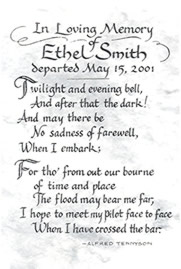 In Loving Memory
of
Ethel Smith
departed May 15, 2001
Twilight and evening bell,
And after that the dark!
And may there be
No sadness of farewell,
When I embark;
For tho' from out our bourne
of time and place
The flood may bear me far,
I hope to meet my Pilot face to face
When I have crossed the bar.
—ALFRED TENNYSON